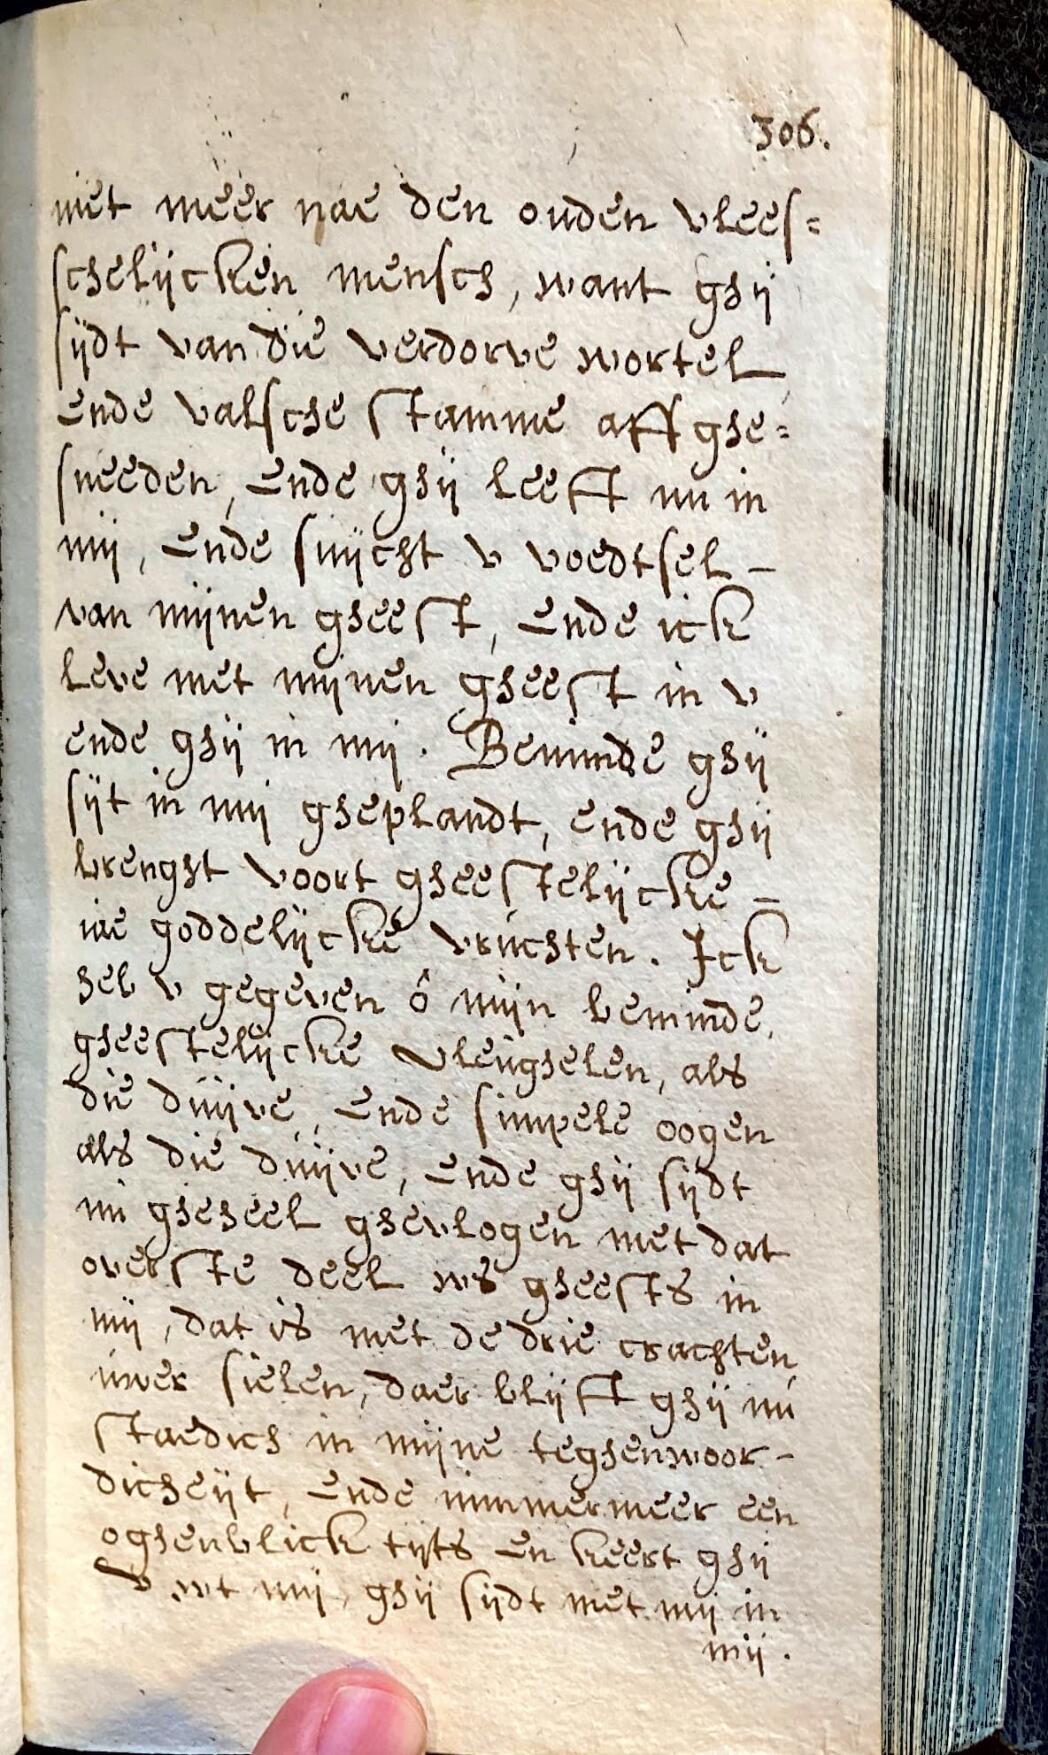 306.
niet meer nae den ouden vlees=
schelijcken mensch, want ghij
sijdt van die verdorve wortel
ende valsche stamme aff ghe=
sneeden, ende ghij leeft nu in
mij, ende suijcht v voedtsel -
van mijnen gheest, ende ick
leve met mijnen gheest in v
ende ghij in mij. Beminde ghij
sijt in mij gheplandt, ende ghij
brenght voort gheestelijcke -
iae goddelijcke vruchten. Ick
heb v gegeven ô mijn beminde,
gheestelijcke vleughelen, als
die duijve, ende simpele oogen
als die duijve, ende ghij sijdt
nu gheheel ghevlogen met dat
overste deel ws gheests in
mij, dat is met de drie crachten
uwer sielen, daer blijft ghij nu
staedich in mijne teghenwoor-
dicheijt, ende nimmermeer een
oghenblick tijts en keert ghij
v wt mij, ghij sijdt met mij in
mij.